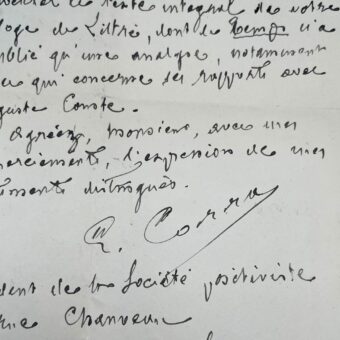 le texte intégral de votre
loge de Littré, dont le Temps n'a
blié qu'une analyse, notamment
ce qui concerne ses rapports avec
guste Comte.
Agréez, Monsieur, avec mes
merciements, l'expression de mes
timents distingués.
E. Corra
dent de la Société positiviste
rue Chanveau